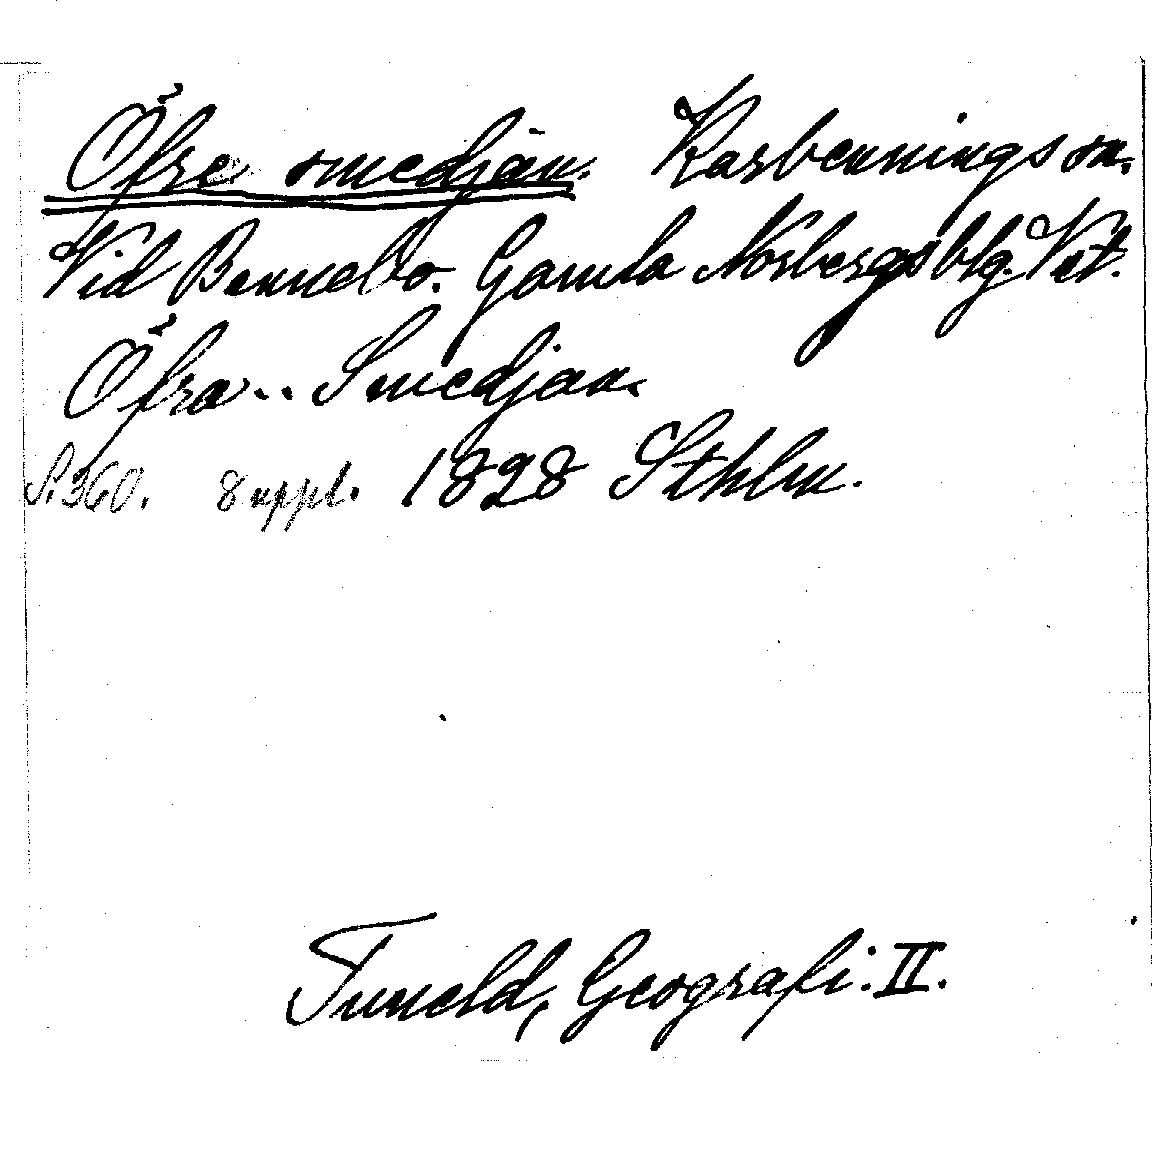 Öfre smedjan. Karbennings sn.
Vid Bennebo. Gamla Norbergs blg. Vst.
Öfra .. Smedjan.
S. 360. 8 uppl. 1828 Sthlm.
Tuneld, Geografi. II.